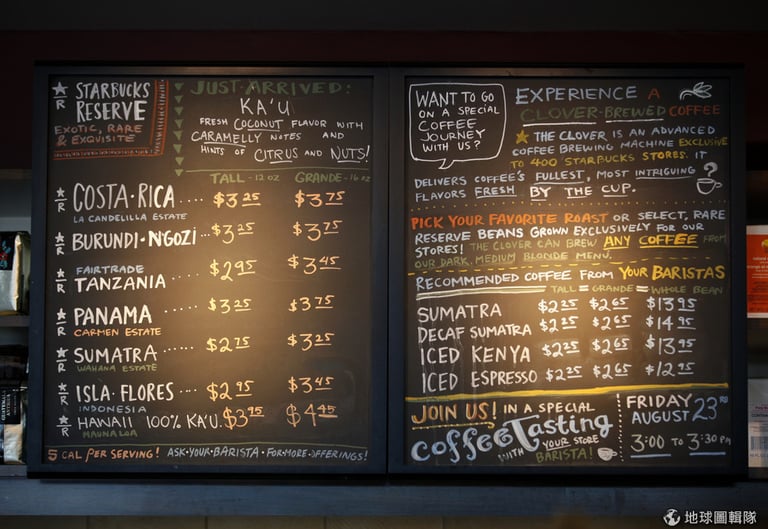 ★ R STARBUCKS
RESERVE
EXOTIC, RARE
& EXQUISITE
JUST ARRIVED:
KA'U
FRESH COCONUT FLAVOR WITH
CARAMELLY NOTES AND
HINTS OF CITRUS AND NUTS!
TALL - 12 OZ GRANDE - 16 OZ
★ R COSTA · RICA ..... $3.25 $3.75
LA CANDELILLA ESTATE
★ R BURUNDI · NGOZI ... $3.25 $3.75
FAIRTRADE
★ R TANZANIA $2.95 $3.45
★ R PANAMA ...... $3.25 $3.75
CARMEN ESTATE
★ R SUMATRA ...... $2.75 $3.25
WAHANA ESTATE
★ R ISLA · FLORES .... $2.95 $3.45
INDONESIA
★ R HAWAII 100% KA'U. $3.95 $4.45
MAUNA LOA
5 CAL PER SERVING! ASK · YOUR · BARISTA · FOR · MORE · OFFERINGS!
WANT TO GO
ON A SPECIAL
COFFEE
JOURNEY
WITH US?
EXPERIENCE A
CLOVER-BREWED COFFEE
★ THE CLOVER IS AN ADVANCED
COFFEE BREWING MACHINE EXCLUSIVE
TO 400 STARBUCKS STORES. IT
DELIVERS COFFEE'S FULLEST, MOST INTRIGUING
FLAVORS FRESH BY THE CUP.
PICK YOUR FAVORITE ROAST OR SELECT, RARE
RESERVE BEANS GROWN EXCLUSIVELY FOR OUR
STORES! THE CLOVER CAN BREW ANY COFFEE FROM
OUR DARK, MEDIUM BLONDE MENU.
RECOMMENDED COFFEE FROM YOUR BARISTAS
TALL = GRANDE = WHOLE BEAN
SUMATRA $2.25 $2.65 $13.95
DECAF SUMATRA $2.25 $2.65 $14.95
ICED KENYA $2.25 $2.65 $13.95
ICED ESPRESSO $2.25 $2.65 $12.95
JOIN US! IN A SPECIAL
Coffee Tasting
WITH YOUR STORE
BARISTA!
FRIDAY
AUGUST 23RD
3:00 TO 3:30 PM
地球圖輯隊